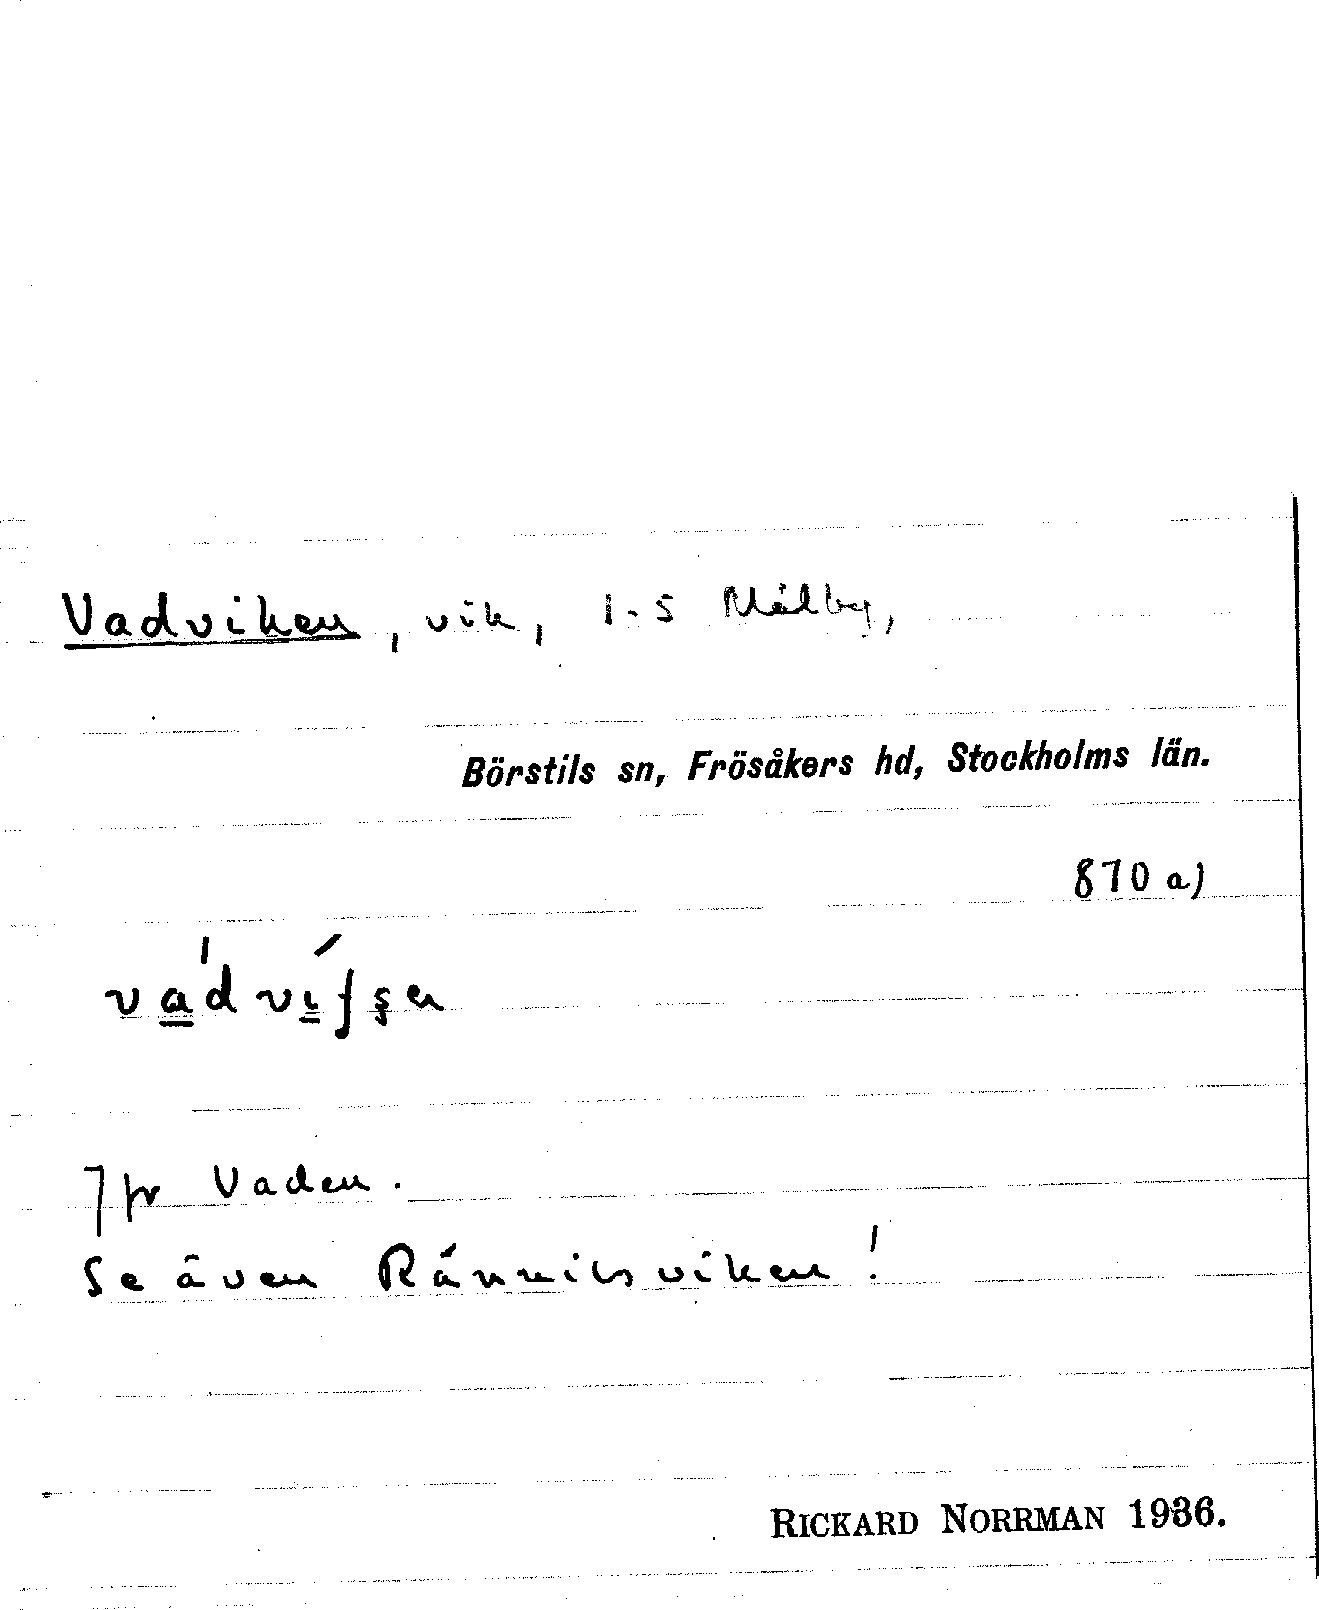 Vadviken, vik, 1-5 Målby,
Börstils sn, Frösåkers hd, Stockholms län.
870 a)
Jfr Vaden.
Se även viken!
RICKARD NORRMAN 1936.